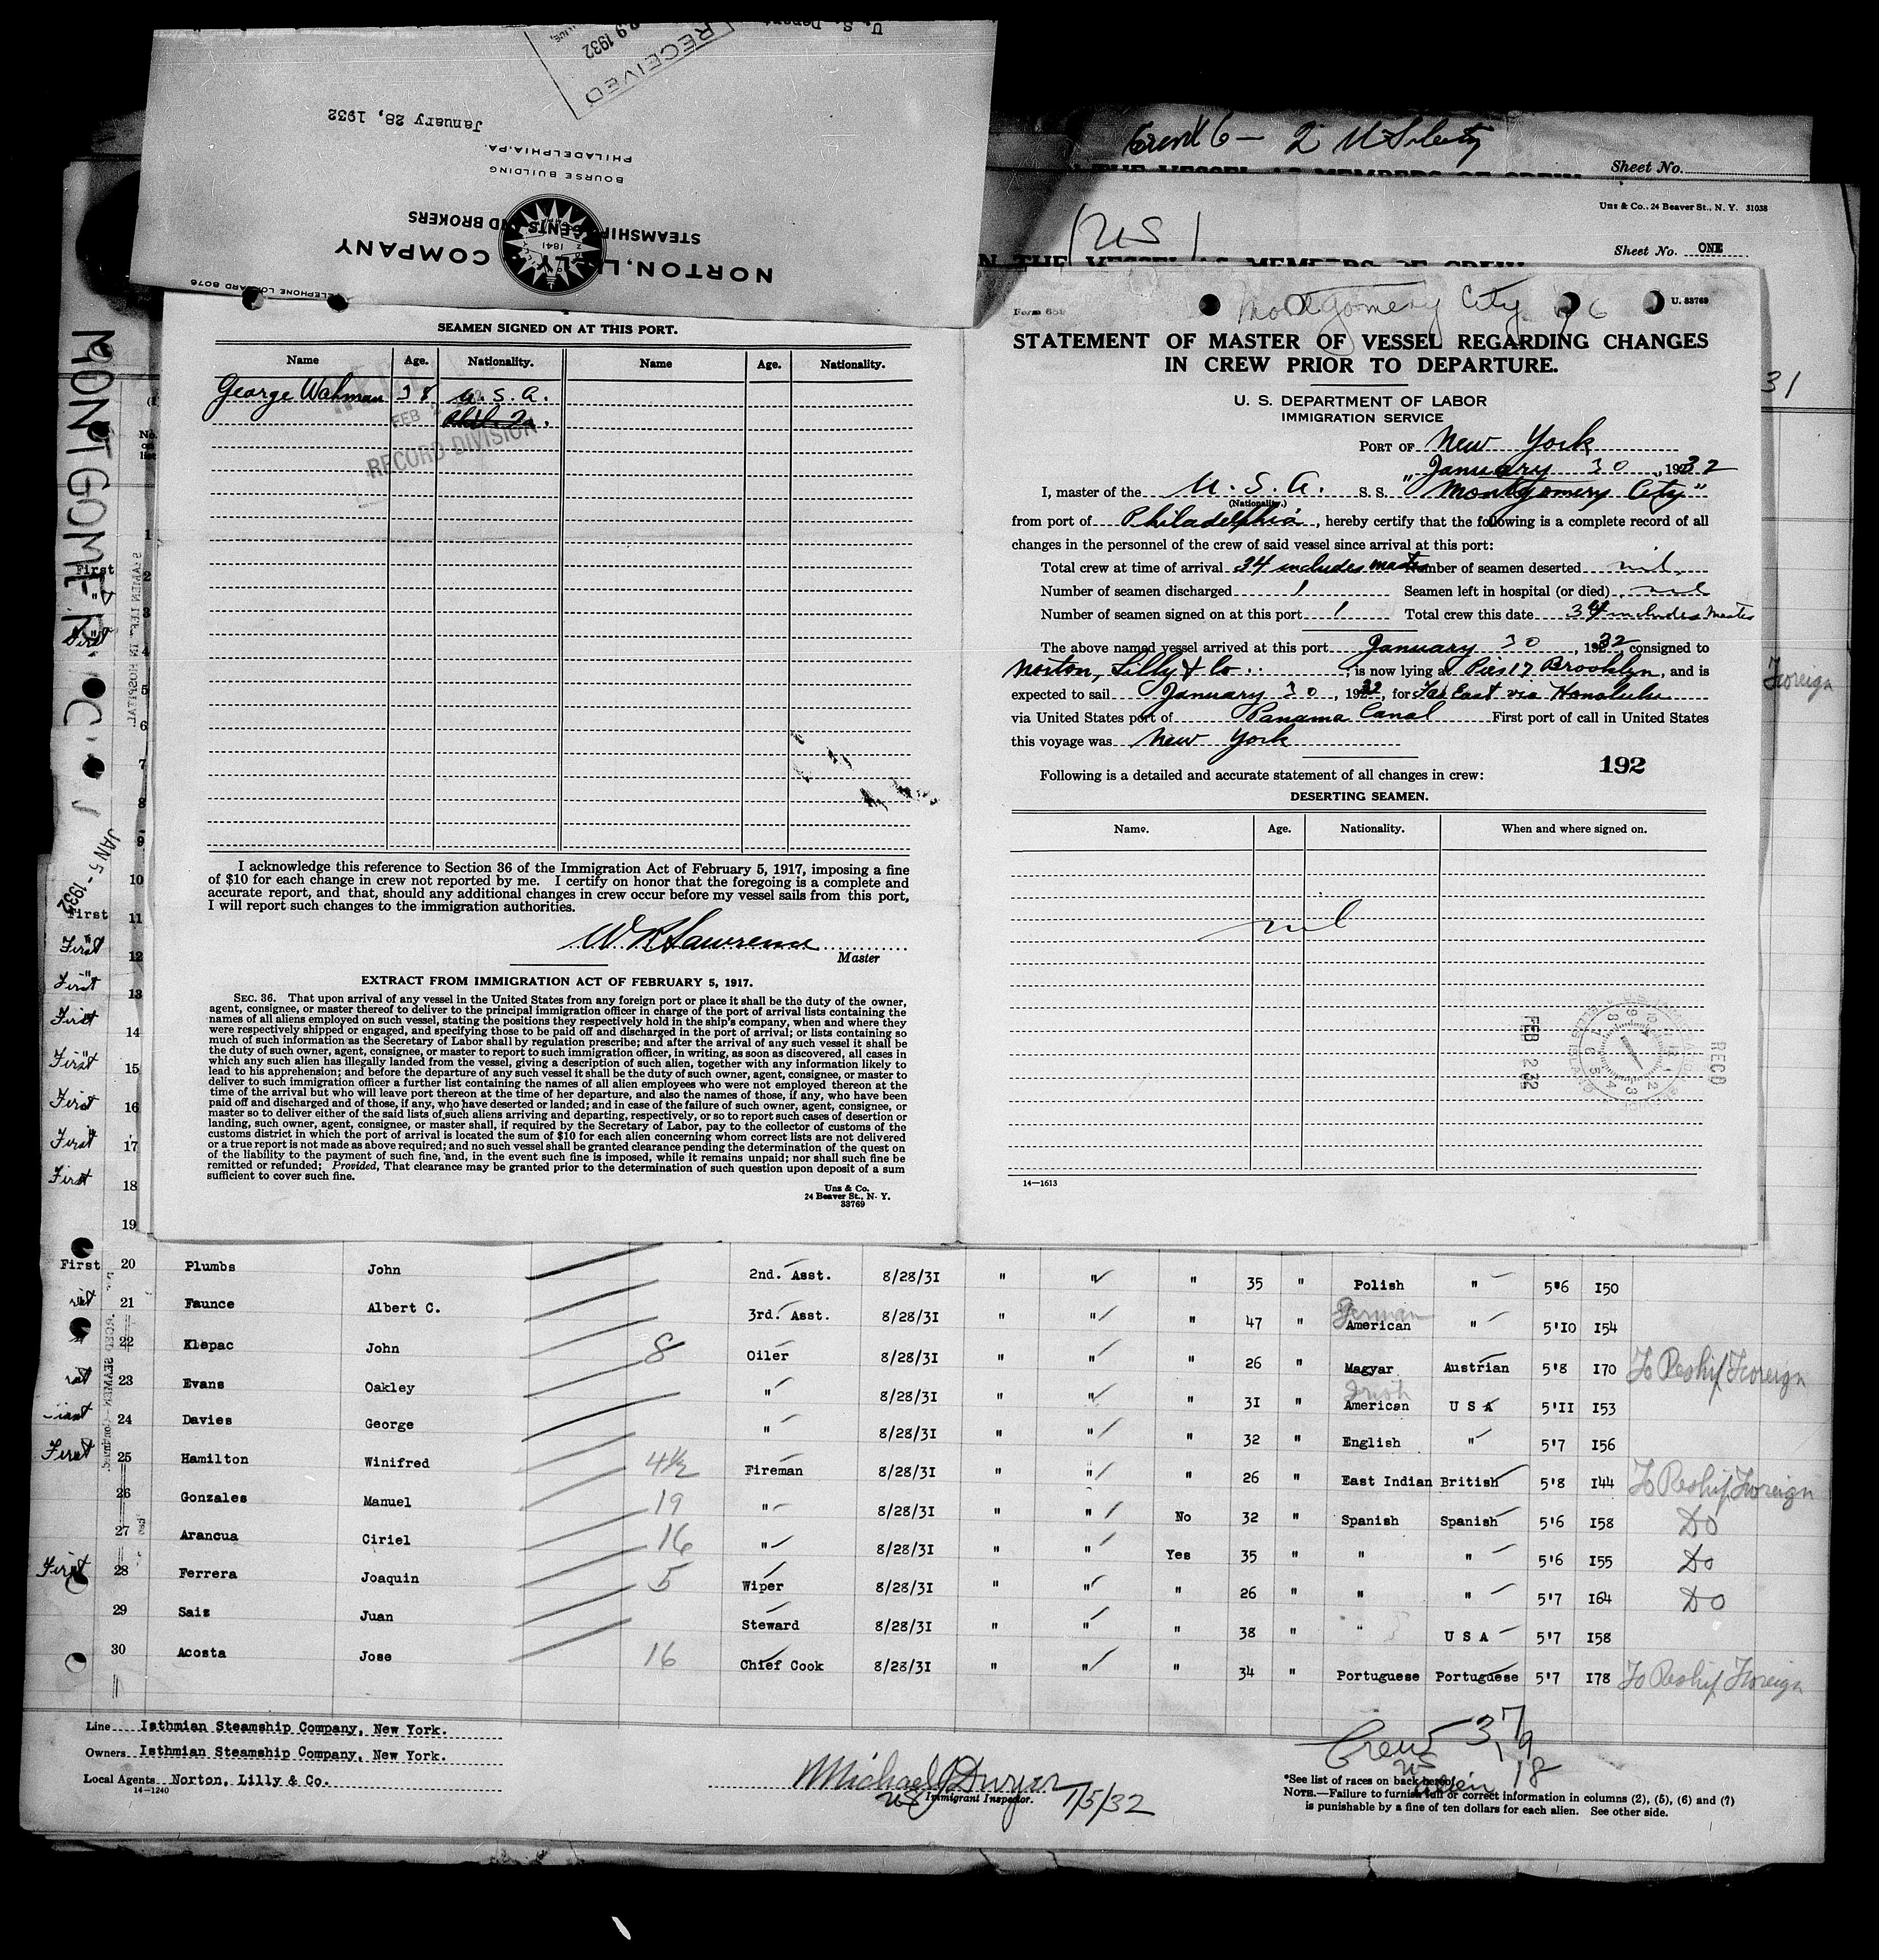 U. S. Depar
RECEIVED
29 1932
January 28, 1932
PHILADELPHIA, PA.
BOURSE BUILDING
STEAMSHIP AGENTS AND BROKERS
NORTON, LILLY COMPANY
1841
TELEPHONE LOMBARD 8076
2 US
Sheet No.
Uns & Co., 24 Beaver St., N. Y. 31038
US
Sheet No. ONE
N THE VESSEL AS MEMBERS OF CREW
31
MONTGOMERY C
JAN 5 - 1932
SEAMEN SIGNED ON AT THIS PORT.
Name Age. Nationality. Name Age. Nationality.
George Wahman 38 U. S. A.
FEB
RECORD DIVISION
I acknowledge this reference to Section 36 of the Immigration Act of February 5, 1917, imposing a fine
of $10 for each change in crew not reported by me. I certify on honor that the foregoing is a complete and
accurate report, and that, should any additional changes in crew occur before my vessel sails from this port,
I will report such changes to the immigration authorities.
W R Lawrence
Master
EXTRACT FROM IMMIGRATION ACT OF FEBRUARY 5, 1917.
SEC. 36. That upon arrival of any vessel in the United States from any foreign port or place it shall be the duty of the owner,
agent, consignee, or master thereof to deliver to the principal immigration officer in charge of the port of arrival lists containing the
names of all aliens employed on such vessel, stating the positions they respectively hold in the ship's company, when and where they
were respectively shipped or engaged, and specifying those to be paid off and discharged in the port of arrival; or lists containing so
much of such information as the Secretary of Labor shall by regulation prescribe; and after the arrival of any such vessel it shall be
the duty of such owner, agent, consignee, or master to report to such immigration officer, in writing, as soon as discovered, all cases in
which any such alien has illegally landed from the vessel, giving a description of such alien, together with any information likely to
lead to his apprehension; and before the departure of any such vessel it shall be the duty of such owner, agent, consignee, or master to
deliver to such immigration officer a further list containing the names of all alien employees who were not employed thereon at the
time of the arrival but who will leave port thereon at the time of her departure, and also the names of those, if any, who have been
paid off and discharged and of those, if any, who have deserted or landed; and in case of the failure of such owner, agent, consignee, or
master so to deliver either of the said lists of such aliens arriving and departing, respectively, or so to report such cases of desertion or
landing, such owner, agent, consignee, or master shall, if required by the Secretary of Labor, pay to the collector of customs of the
customs district in which the port of arrival is located the sum of $10 for each alien concerning whom correct lists are not delivered
or a true report is not made as above required; and no such vessel shall be granted clearance pending the determination of the quest on
of the liability to the payment of such fine, and, in the event such fine is imposed, while it remains unpaid; nor shall such fine be
remitted or refunded; Provided, That clearance may be granted prior to the determination of such question upon deposit of a sum
sufficient to cover such fine.
Uns & Co.
24 Beaver St., N. Y.
33769
Form 689
Montgomery City
U. 33769
STATEMENT OF MASTER OF VESSEL REGARDING CHANGES
IN CREW PRIOR TO DEPARTURE.
U. S. DEPARTMENT OF LABOR
IMMIGRATION SERVICE
PORT OF New York
January 30, 1932
I, master of the U. S. A. S. S. "Montgomery City"
(Nationality.)
from port of Philadelphia, hereby certify that the following is a complete record of all
changes in the personnel of the crew of said vessel since arrival at this port:
Total crew at time of arrival 34 includes master Number of seamen deserted nil
Number of seamen discharged 1 Seamen left in hospital (or died) nil
Number of seamen signed on at this port 1 Total crew this date 34 includes Master
The above named vessel arrived at this port January 30, 1932, consigned to
Norton, Lilly & Co.; is now lying at Pier 17 Brooklyn, and is
expected to sail January 30, 1932, for Far East via Honolulu
via United States port of Panama Canal First port of call in United States
this voyage was New York
192
Following is a detailed and accurate statement of all changes in crew:
DESERTING SEAMEN.
Name. Age. Nationality. When and where signed on.
nil
RECD
FEB 2 32
14—1613
Foreign
First 20 Plumbs John 2nd. Asst. 8/28/31 " " " 35 " Polish " 5'6 150
21 Faunce Albert C. 3rd. Asst. 8/28/31 " " " 47 " German American " 5'10 154
22 Klepac John 8 Oiler 8/28/31 " " " 26 " Magyar Austrian 5'8 170 To Reship Foreign
23 Evans Oakley " 8/28/31 " " " 31 " Irish American U S A 5'11 153
24 Davies George " 8/28/31 " " " 32 " English " 5'7 156
First 25 Hamilton Winifred 4½ Fireman 8/28/31 " " " 26 " East Indian British 5'8 144 To Reship Foreign
26 Gonzales Manuel 19 " 8/28/31 " " No 32 " Spanish Spanish 5'6 158 Do
27 Arancua Ciriel 16 " 8/28/31 " " Yes 35 " " " 5'6 155 Do
First 28 Ferrera Joaquin 5 Wiper 8/28/31 " " " 26 " " " 5'7 164 Do
29 Saiz Juan Steward 8/28/31 " " " 38 " " U S A 5'7 158
30 Acosta Jose 16 Chief Cook 8/28/31 " " " 34 " Portuguese Portuguese 5'7 178 To Reship Foreign
Line Isthmian Steamship Company, New York.
Owners Isthmian Steamship Company, New York.
Local Agents Norton, Lilly & Co.
14—1240
Michael J Dwyer 1/5/32
Immigrant Inspector.
Crew 37
US 19
Alien 18
*See list of races on back hereof.
NOTE.—Failure to furnish full or correct information in columns (2), (5), (6) and (7)
is punishable by a fine of ten dollars for each alien. See other side.